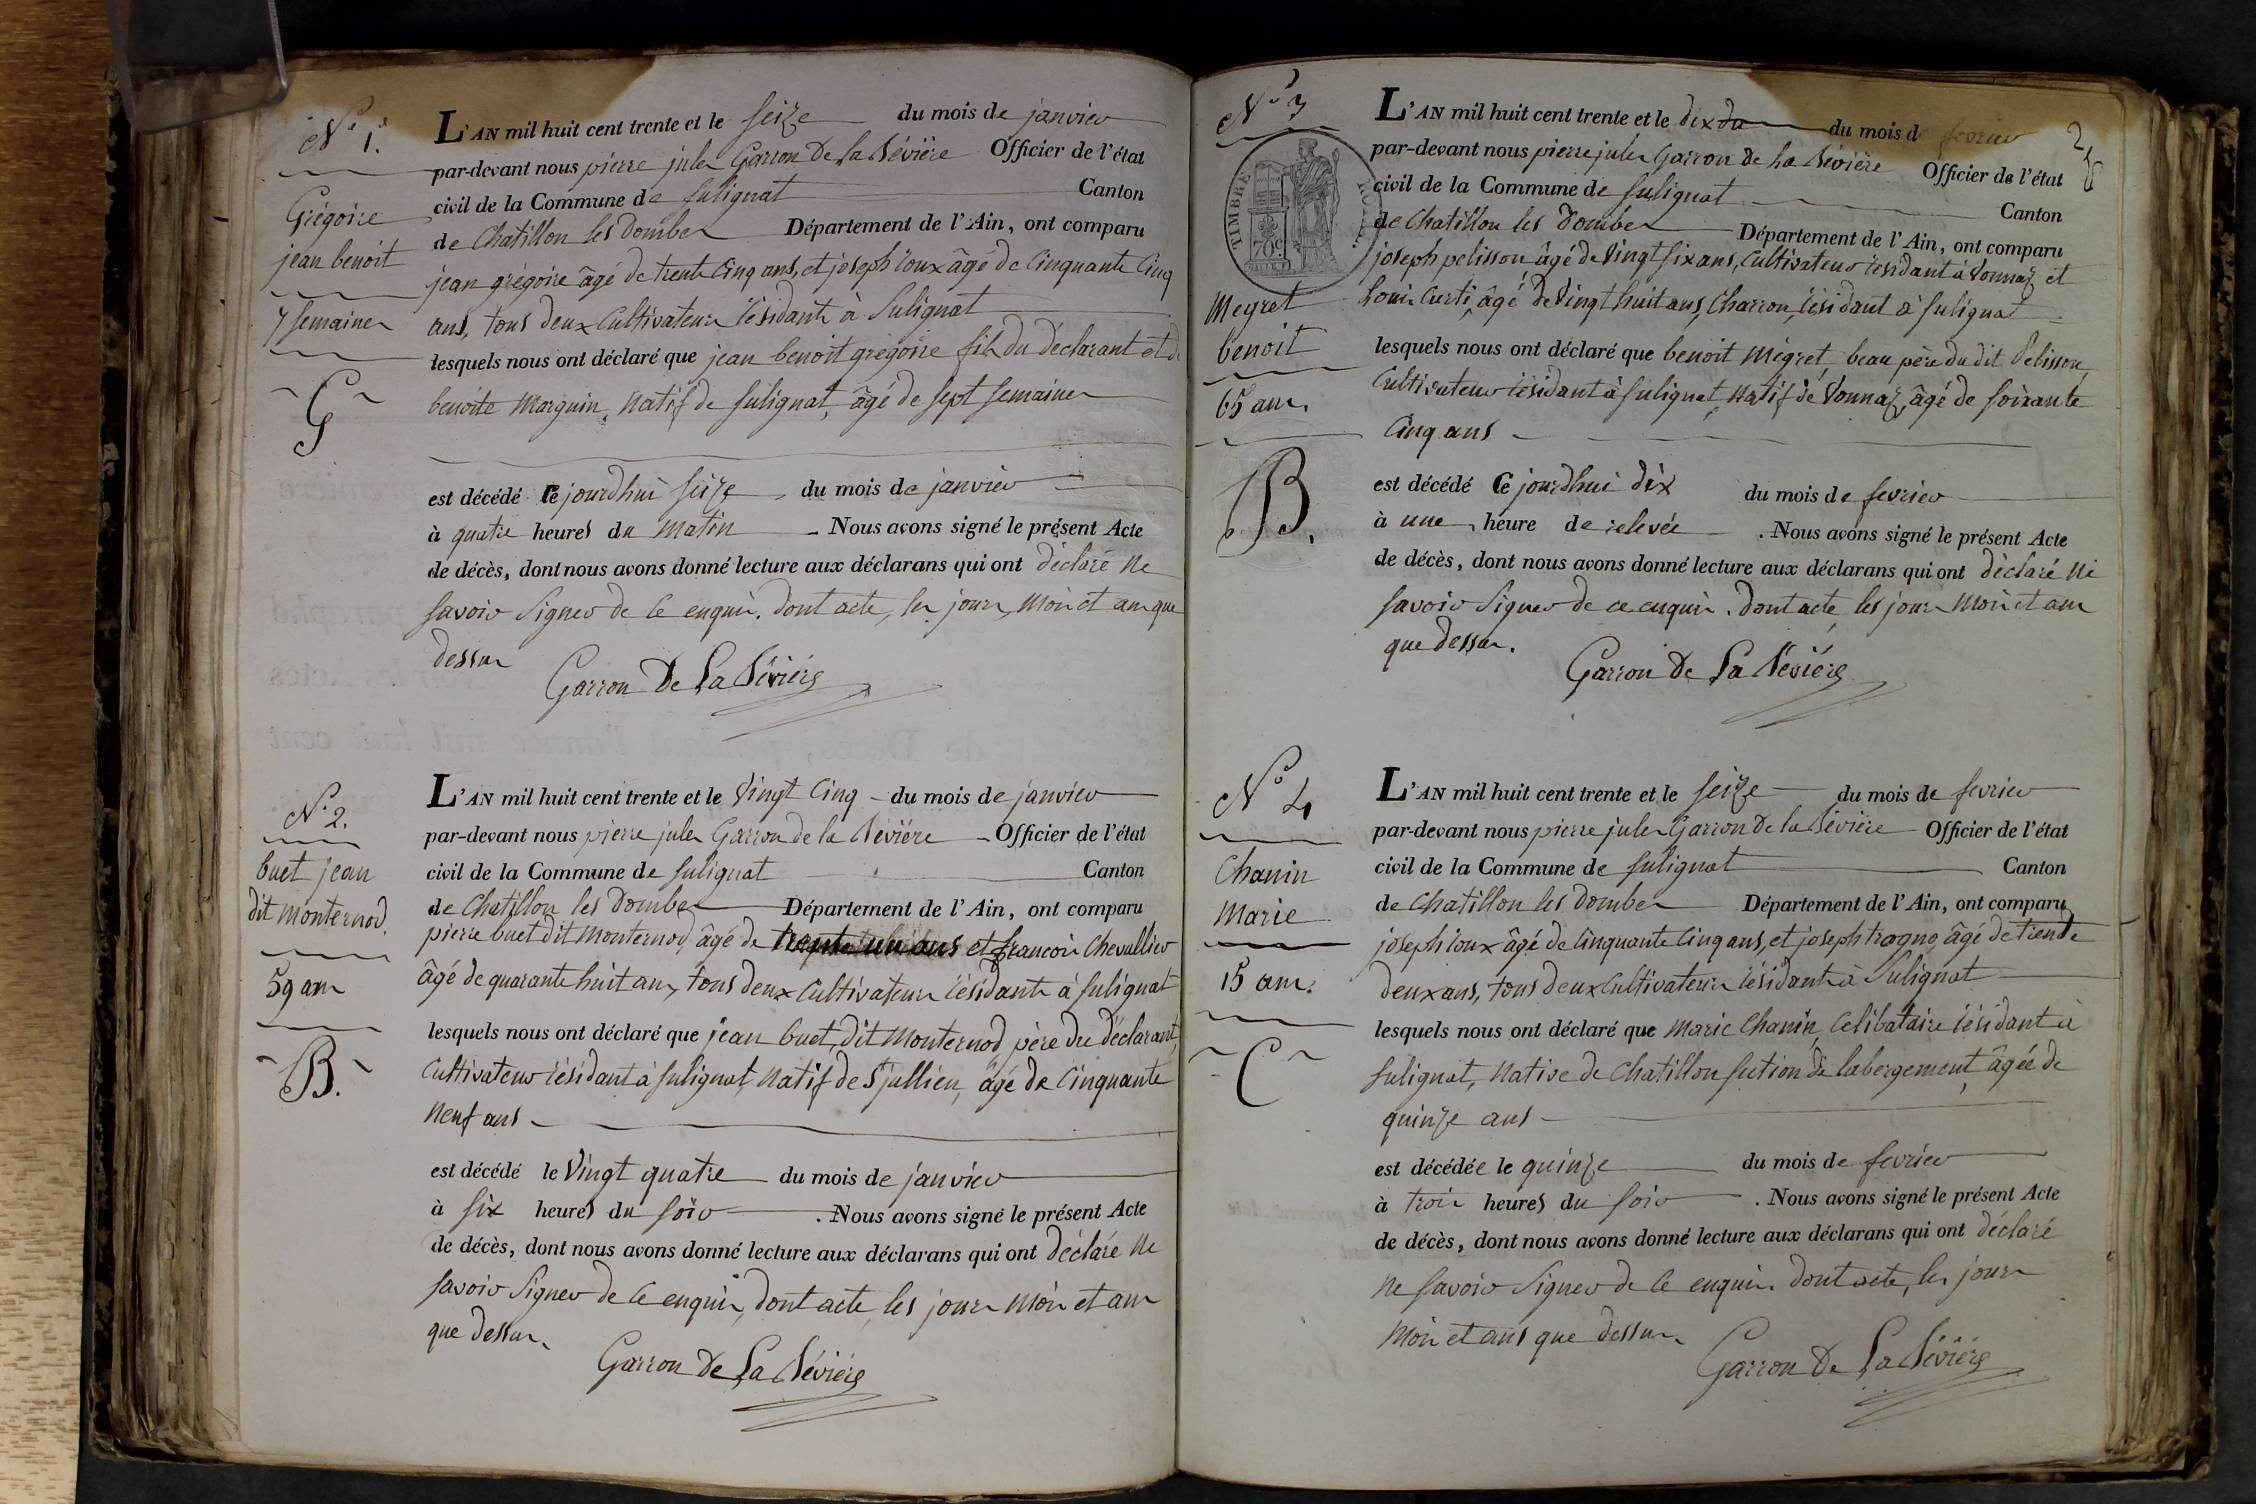 N.° 1.er
Grégoire
jean benoit
7 semaines
G
L'AN mil huit cent trente et le seize du mois de janvier
par-devant nous pierre jules Garron De la Bévière Officier de l'état
civil de la Commune de sulignat Canton
de Chatillon les Dombes Département de l'Ain, ont comparu
jean grégoire âgé de trente Cinq ans, et joseph ioux âgé de Cinquante Cinq
ans, tous deux Cultivateurs résidants à Sulignat
lesquels nous ont déclaré que jean benoit gregoire fils du déclarant et de
benoite Marguin, Natif de sulignat, âgé de sept semaines
est décédé ce jourdhui seize du mois de janvier
à quatre heures du Matin Nous avons signé le présent Acte
de décès, dont nous avons donné lecture aux déclarans qui ont déclaré Ne
savoir Signer de ce enquis. Dont acte, les jour, Mois et an que
dessus
Garron De La Bévière
N.° 2.
buet jean
dit monternod.
59 ans
B.
L'AN mil huit cent trente et le Vingt Cinq du mois de janvier
par-devant nous pierre jules Garron de la Bévière Officier de l'état
civil de la Commune de sulignat Canton
de Chatillon les Dombes Département de l'Ain, ont comparu
pierre buet dit Monternod, âgé de trente un ans et francois Chevallier
âgé de quarante huit ans, tous deux Cultivateurs résidants à sulignat
lesquels nous ont déclaré que jean buet, dit Monternod, père du déclarant,
Cultivateur résidant à sulignat, Natif de St jullien, âgé de Cinquante
Neuf ans
est décédé le Vingt quatre du mois de janvier
à six heures du soir . Nous avons signé le présent Acte
de décès, dont nous avons donné lecture aux déclarans qui ont déclaré Ne
savoir Signer de ce enquis, dont acte, les jours Mois et ans
que dessus.
Garron De La Bévière
N° 3
TIMBRE
70c.
Megret
benoit
65 ans.
B.
L'AN mil huit cent trente et le dix du du mois d fevrier
par-devant nous pierre jules Garron de La Bévière Officier de l'état
civil de la Commune de sulignat Canton
de Chatillon les Dombes Département de l'Ain, ont comparu
joseph pelisson âgé de Vingt six ans, Cultivateur résidant à Vonnaz et
Louis Curti, âgé de Vingt huit ans, Charron, résidant à sulignat
lesquels nous ont déclaré que benoit Mégret, beau père du dit Pelisson,
Cultivateur résidant à sulignat, Natif de Vonnaz, âgé de soixante
Cinq ans
est décédé Ce jourdhui dix du mois de fevrier
à une heure de relevée . Nous avons signé le présent Acte
de décès, dont nous avons donné lecture aux déclarans qui ont déclaré Ne
savoir Signer de ce enquis. Dont acte, les jour Mois et ans
que dessus.
Garron De La Bévière
N° 4
Chanin
Marie
15 ans.
C
L'AN mil huit cent trente et le seize du mois de fevrier
par-devant nous pierre jules Garron De la Bévière Officier de l'état
civil de la Commune de sulignat Canton
de Chatillon les Dombes Département de l'Ain, ont comparu
joseph ioux âgé de Cinquante Cinq ans, et joseph tragno, âgé de trente
deux ans, tous deux Cultivateurs résidants à Sulignat
lesquels nous ont déclaré que Marie Chanin, Celibataire résidant à
sulignat, Native de Chatillon section de labergement, âgée de
quinze ans
est décédée le quinze du mois de fevrier
à trois heures du soir . Nous avons signé le présent Acte
de décès, dont nous avons donné lecture aux déclarans qui ont déclaré
Ne savoir Signer de ce enquis. Dont acte, les jours
Mois et ans que dessus.
Garron De La Bévière